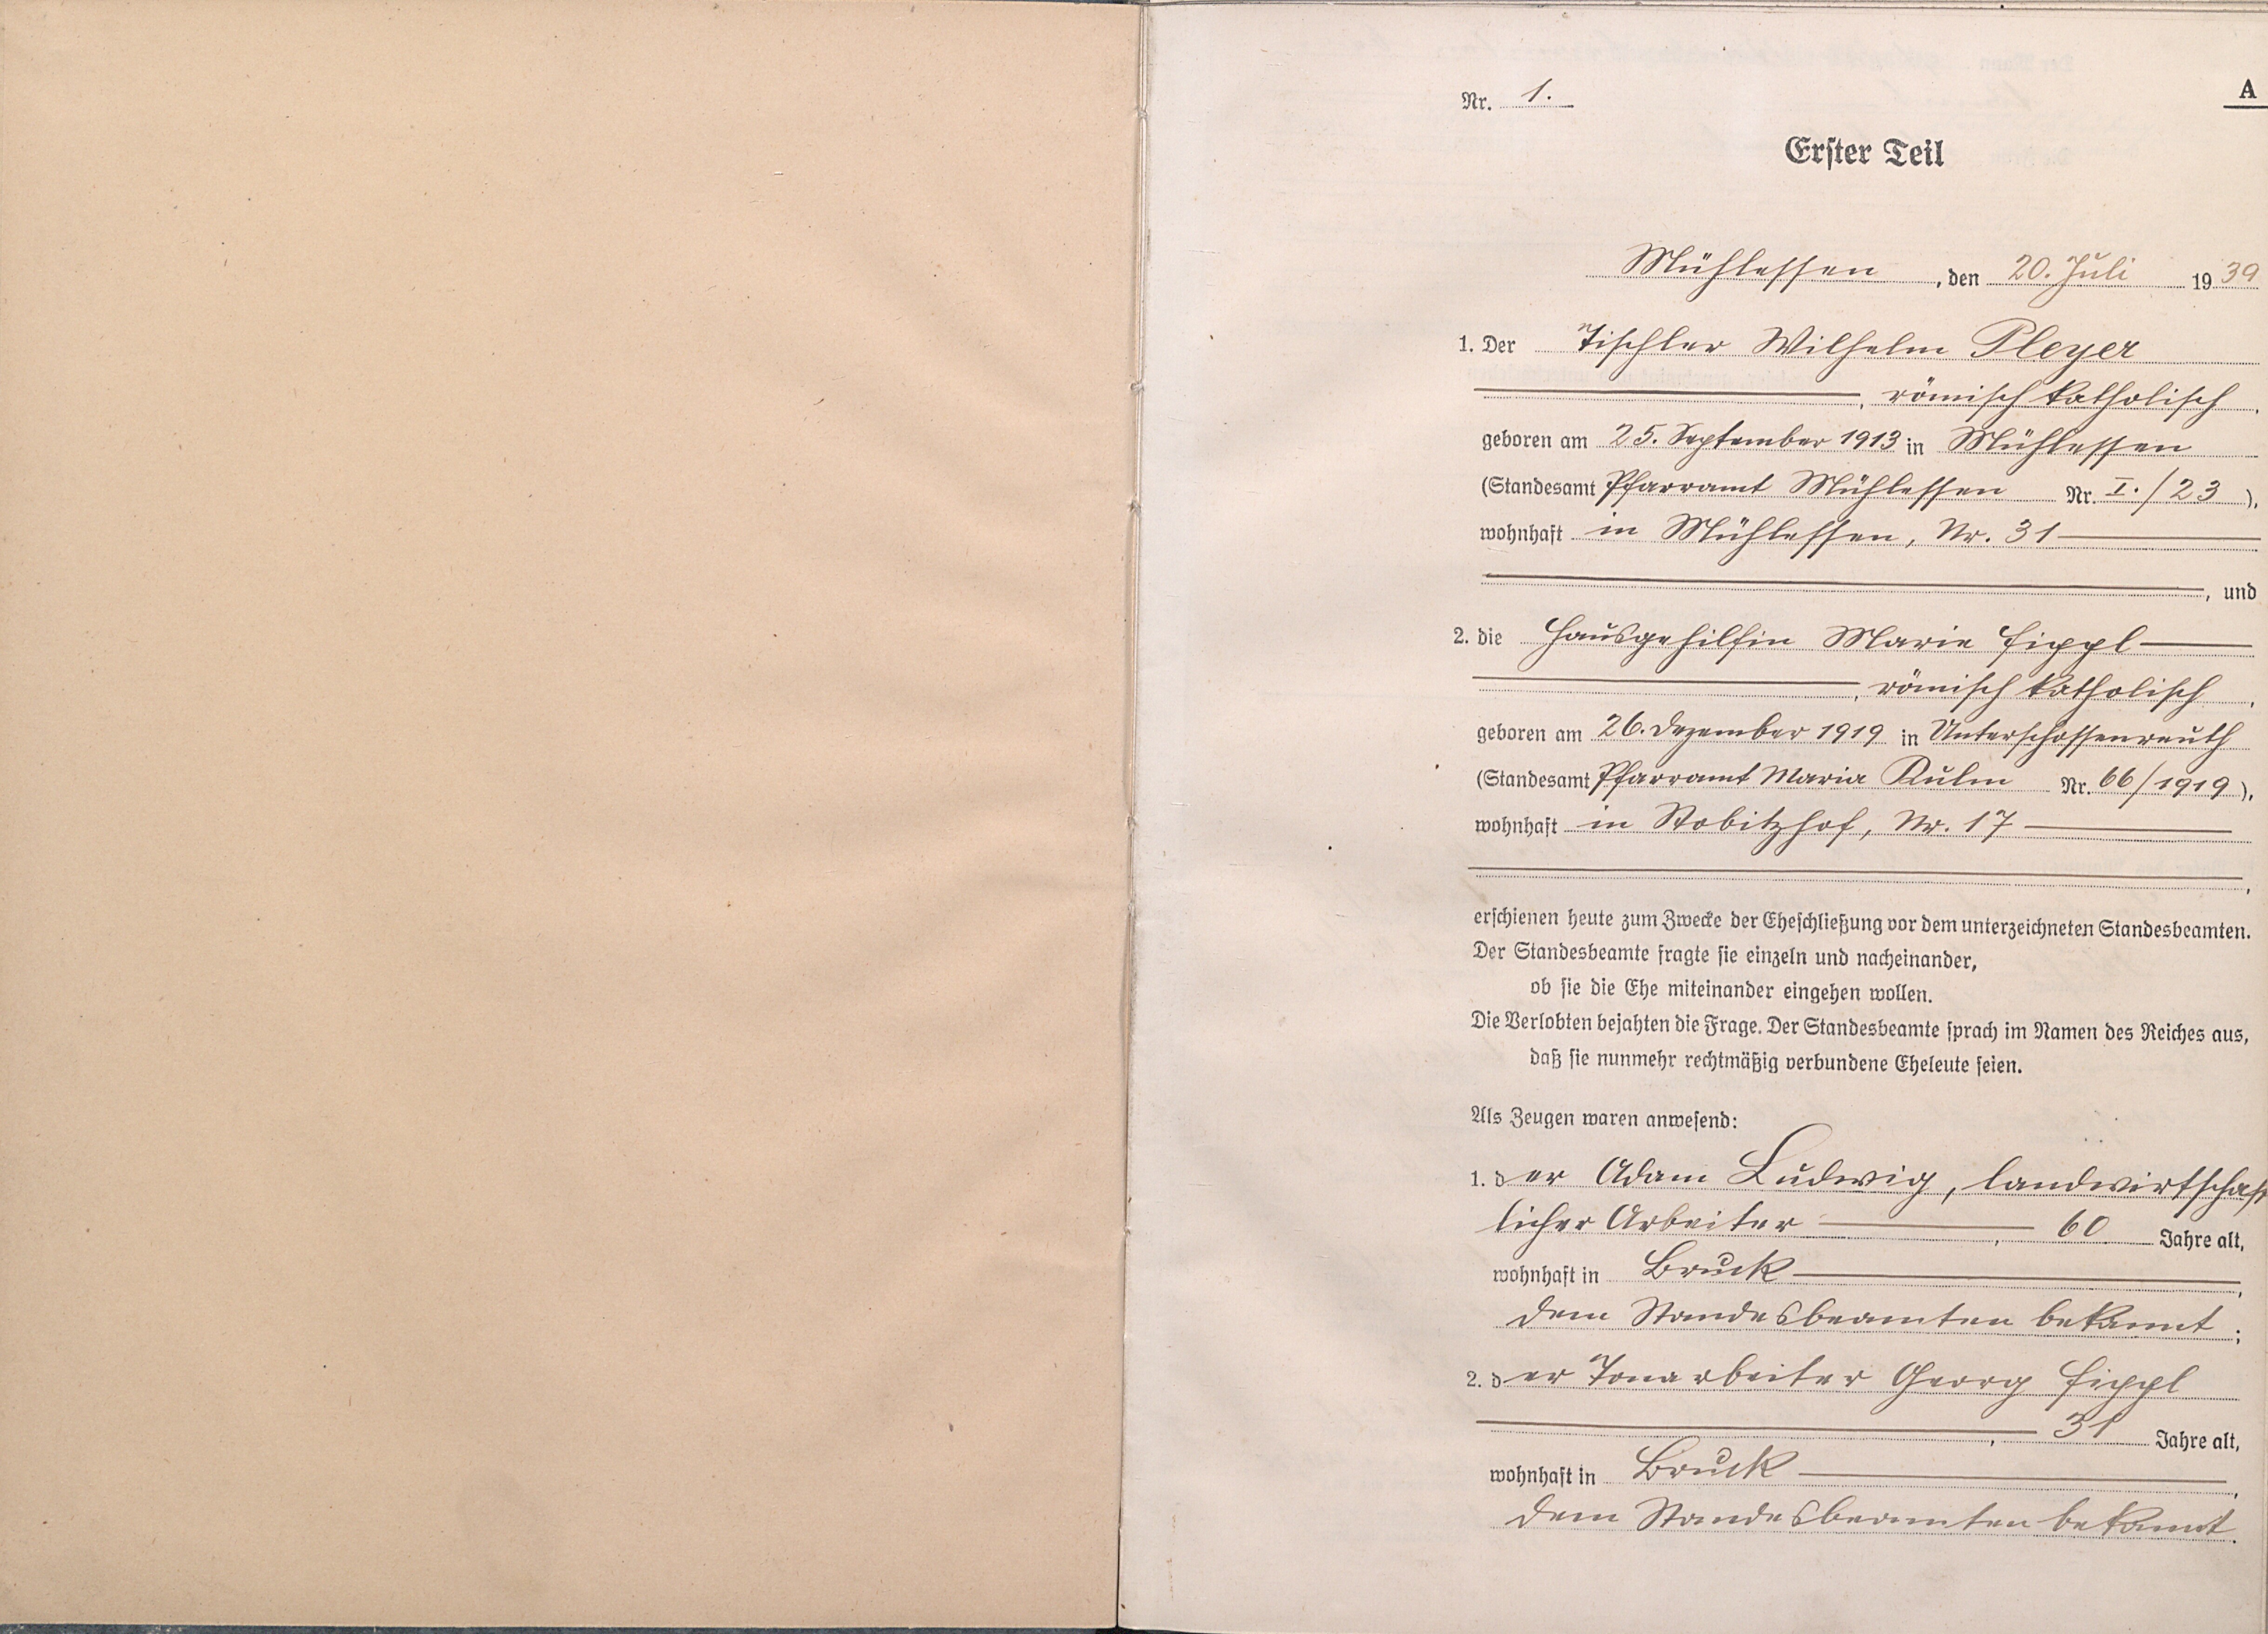 Nr. 1.
A
Erster Teil
Mühlessen, den 20. Juli 1939
1. Der Tischler Wilhelm Pleyer
, römisch katholisch,
geboren am 25. September 1913 in Mühlessen
(Standesamt Pfarramt Mühlessen Nr. I./23),
wohnhaft in Mühlessen, Nr. 31
, und
2. die Hausgehilfin Marie Fippl
, römisch katholisch,
geboren am 26. Dezember 1919 in Unterschossenreuth
(Standesamt Pfarramt Maria Kulm Nr. 66/1919),
wohnhaft in Stobitzhof, Nr. 17
,
erschienen heute zum Zwecke der Eheschließung vor dem unterzeichneten Standesbeamten.
Der Standesbeamte fragte sie einzeln und nacheinander,
ob sie die Ehe miteinander eingehen wollen.
Die Verlobten bejahten die Frage. Der Standesbeamte sprach im Namen des Reiches aus,
daß sie nunmehr rechtmäßig verbundene Eheleute seien.
Als Zeugen waren anwesend:
1. der Adam Ludwig, landwirtschaft
licher Arbeiter, 60 Jahre alt,
wohnhaft in Bruck,
dem Standesbeamten bekannt;
2. der Tonarbeiter Georg Fippl
, 31 Jahre alt,
wohnhaft in Bruck,
dem Standesbeamten bekannt.